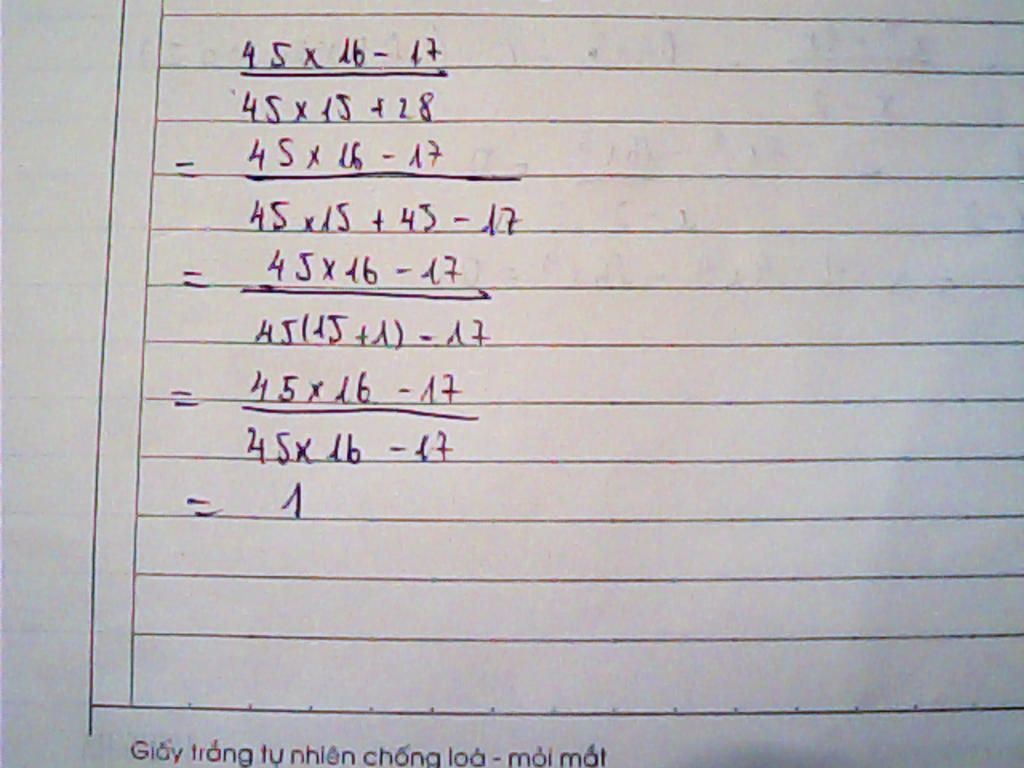 45 × 16 - 17
45 × 15 + 28
= 45 × 16 - 17
45 × 15 + 45 - 17
= 45 × 16 - 17
45(15 + 1) - 17
= 45 × 16 - 17
45 × 16 - 17
= 1
Giấy trắng tự nhiên chống loá - mỏi mắt